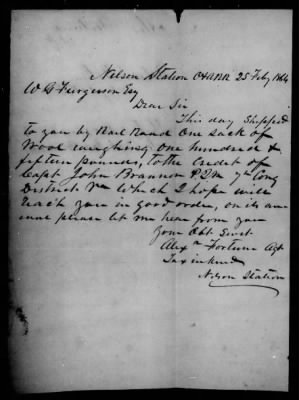 Nelson Station O&ARR 25 Feby 1864
W G Furgerson Esq
Dear Sir
This day Shipped
to you by Rail Road One sack of
Wool weighing one hundred &
fifteen pounds, to the credit of
Capt John Brannon P.Q.M 7th Cong
District Va Which I hope will
reach you in good order, on its arri
val please let me hear from you
Your Obt Servt
Alexr Fortune Agt
Tax in kind
Nelson Station